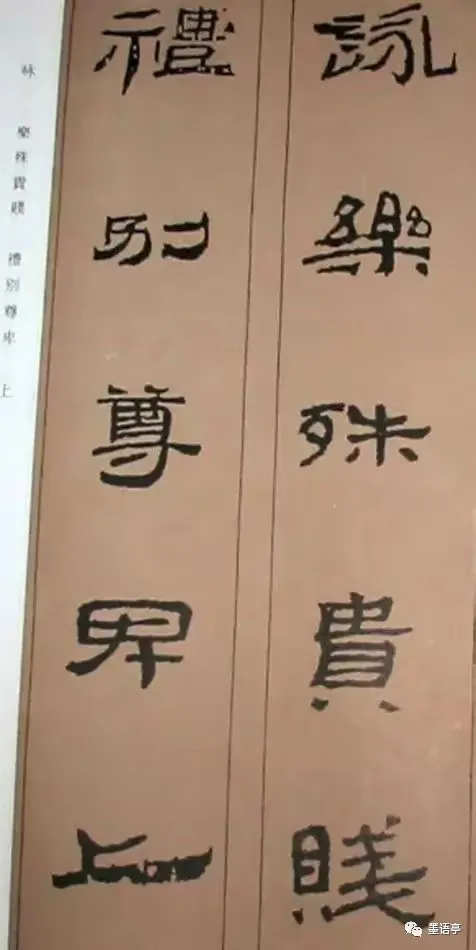 詠樂殊貴賤
禮別尊卑上
咏 樂殊貴賤 禮別尊卑 上
墨语亭